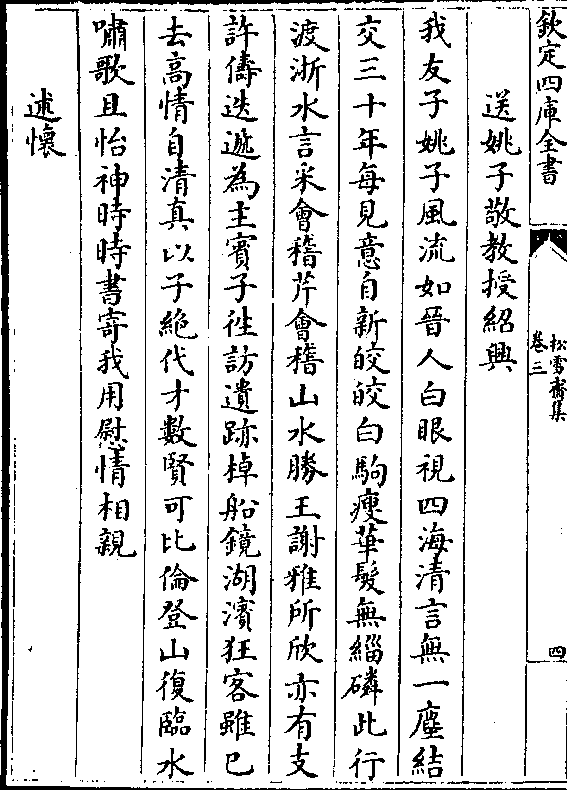 欽定四庫全書
松雪齋集
卷三
四
送姚子敬教授紹興
我友子姚子風流如晉人白眼視四海清言無一塵結
交三十年每見意自新皎皎白駒瘦華髮無緇磷此行
渡浙水言采會稽芹會稽山水勝王謝雅所欣亦有支
許儔迭遞為主賓子徃訪遺跡棹船鏡湖濱狂客雖已
去高情自清真以子絕代才數賢可比倫登山復臨水
嘯歌且怡神時時書寄我用慰情相親
述懷